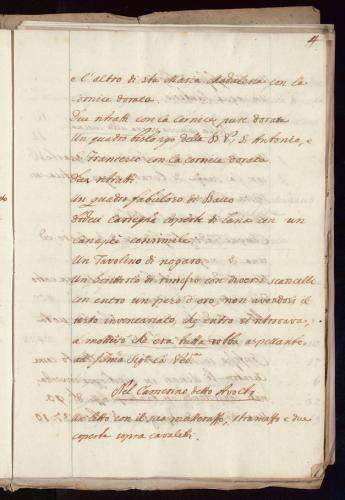 4
e l'altro di Sta Maria Madalena, con la
Cornice dorata.
Due ritratti con la Cornice pure dorata
Un quadro bislongo della B. V., S. Antonio, e
S. Francesco con la cornice dorata.
Due ritratti.
Un quadro fabuloso di Bacco
dodeci Carieghe coperte di lana con un
canapè consimile
Un Tavolino di nogara.
Un Scrittorio di rimesso con diversi scancelli
con entro un pezo d'oro, non avendosi il
resto inventariato, che entro si ritrovava,
a motivo che era tutta robba aspettante
alla Sigra
Nel Camerino detto
Un letto con il suo matterasso, stramasso e due
coperte sopra cavaletti.